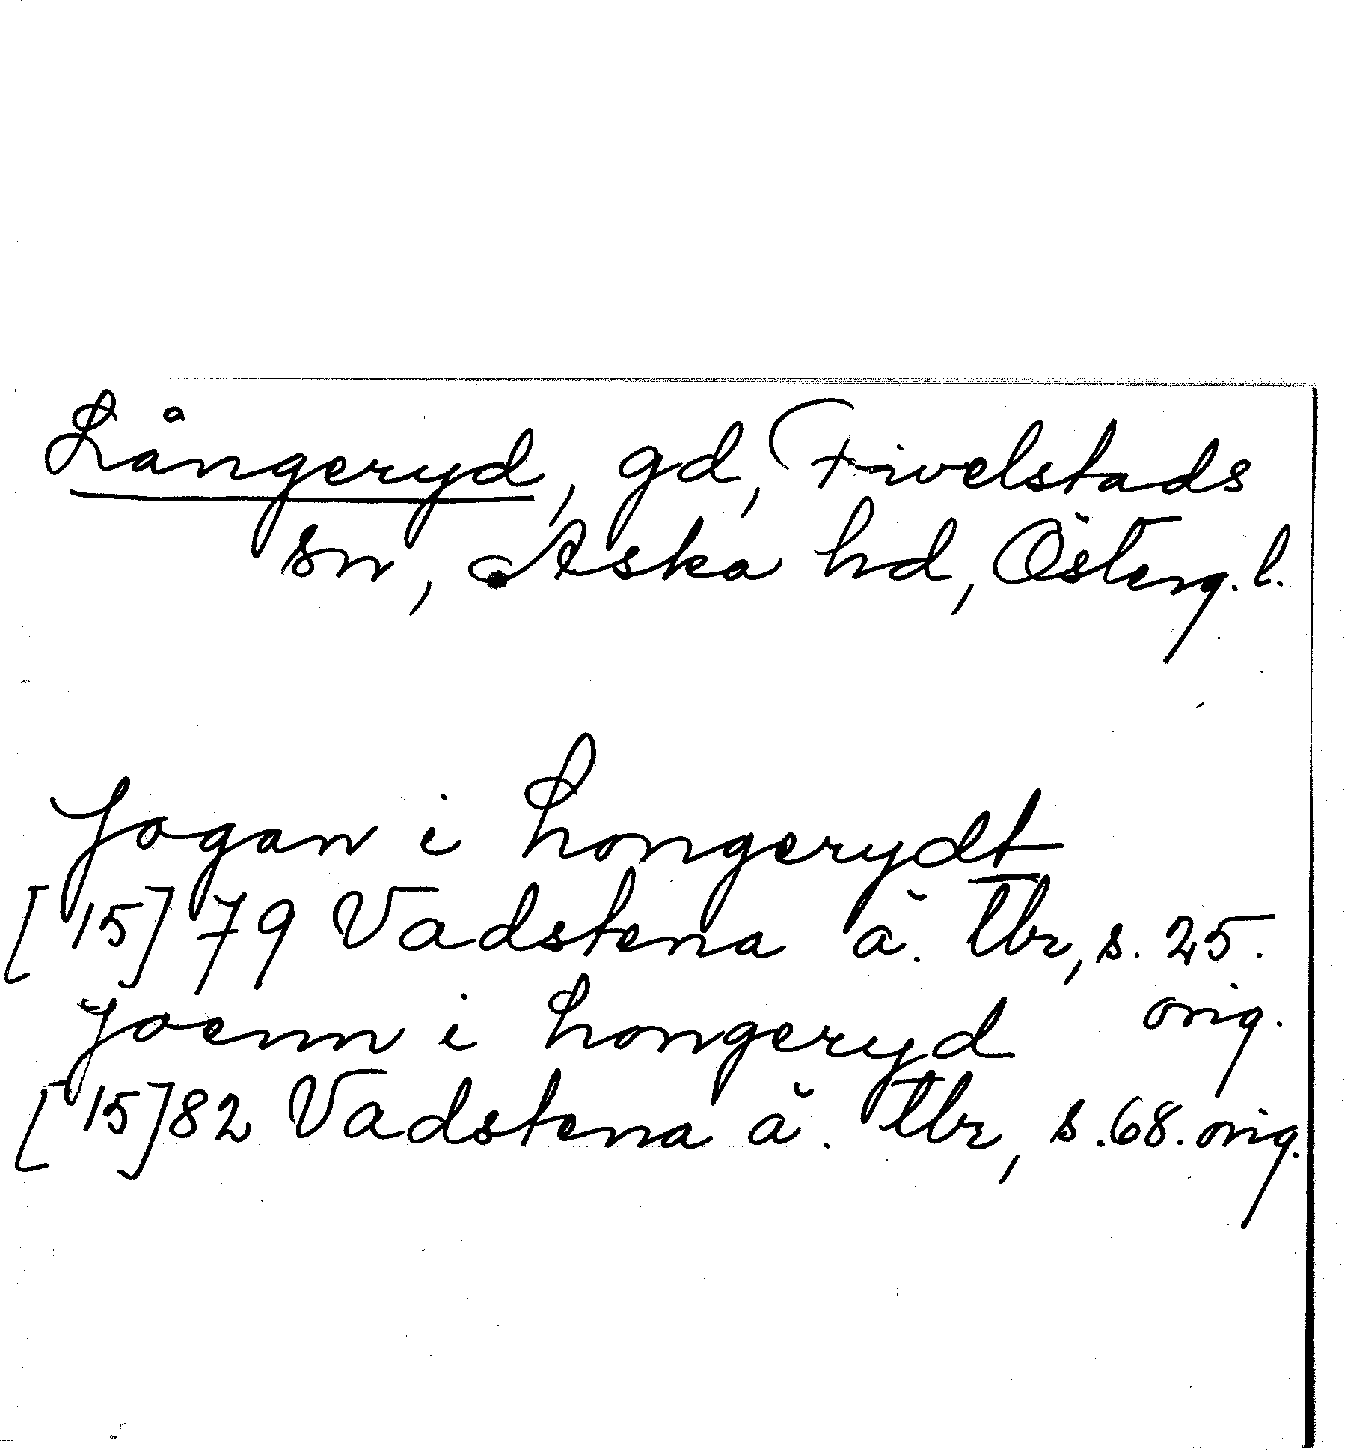 Långeryd, gd, Fivelstads
sn, Aska hd, Österg. l.
Jogan i Longerydt
[15]79 Vadstena ä. tbr, s. 25.
orig.
Joenn i Longeryd
[15]82 Vadstena ä. tbr, s. 68. orig.